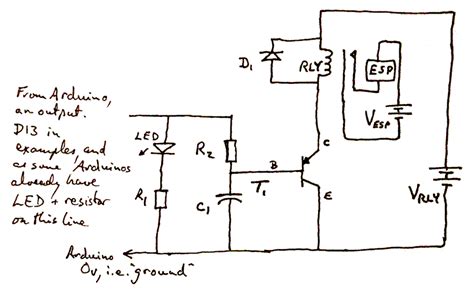 From Arduino,
an output.
D13 in
examples, and
as some Arduinos
already have
LED + resistor
on this line
LED
R1
R2
C1
B
T1
C
E
D1
RLY
ESP
VESP
VRLY
Arduino
0v, i.e. "ground"